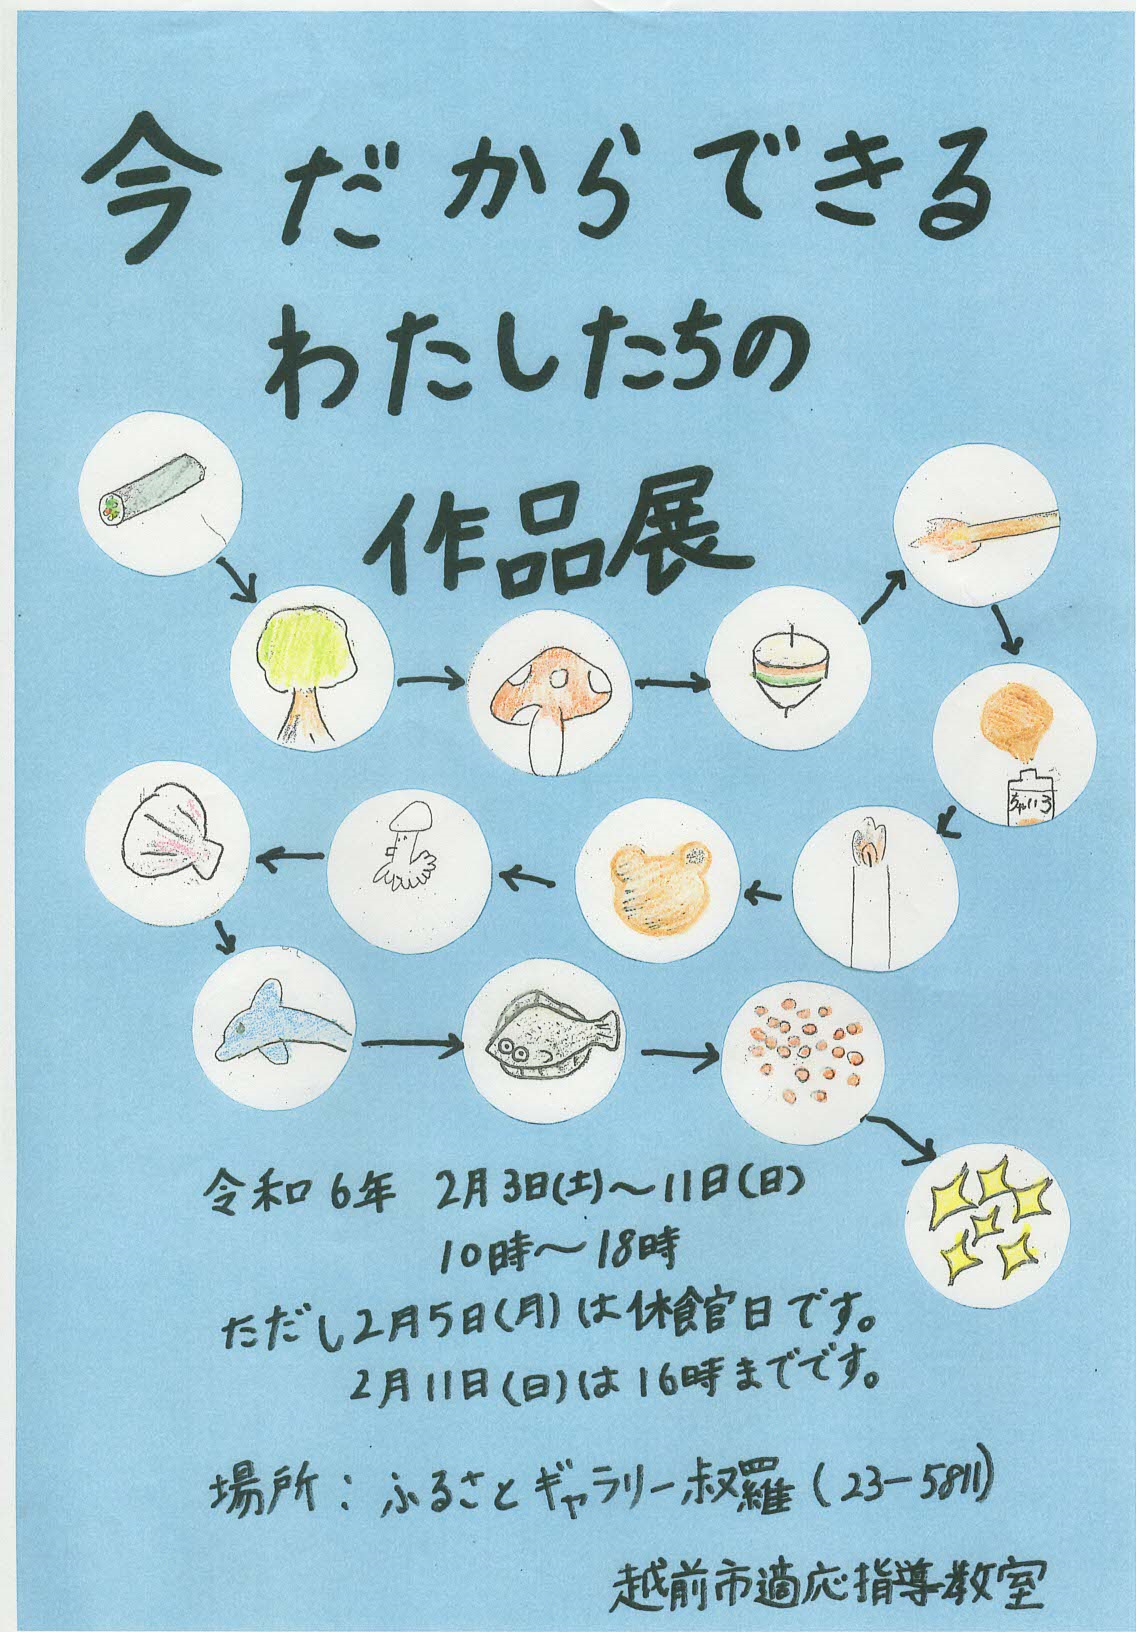 今だからできる
わたしたちの
作品展
ちゃいろ
令和6年 2月3日(土)～11日(日)
10時～18時
ただし2月5日(月)は休館日です。
2月11日(日)は16時までです。
場所：ふるさとギャラリー叔羅(23-5811)
越前市適応指導教室